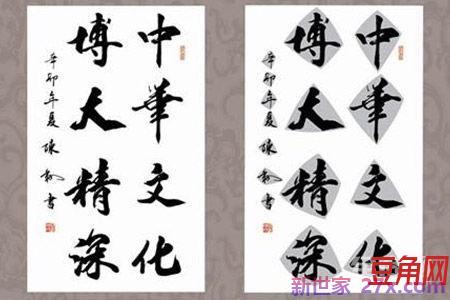 中華文化
博大精深
辛卯年夏 陳 書
中華文化
博大精深
辛卯年夏 陳 書
豆角网
新世家 27x.com